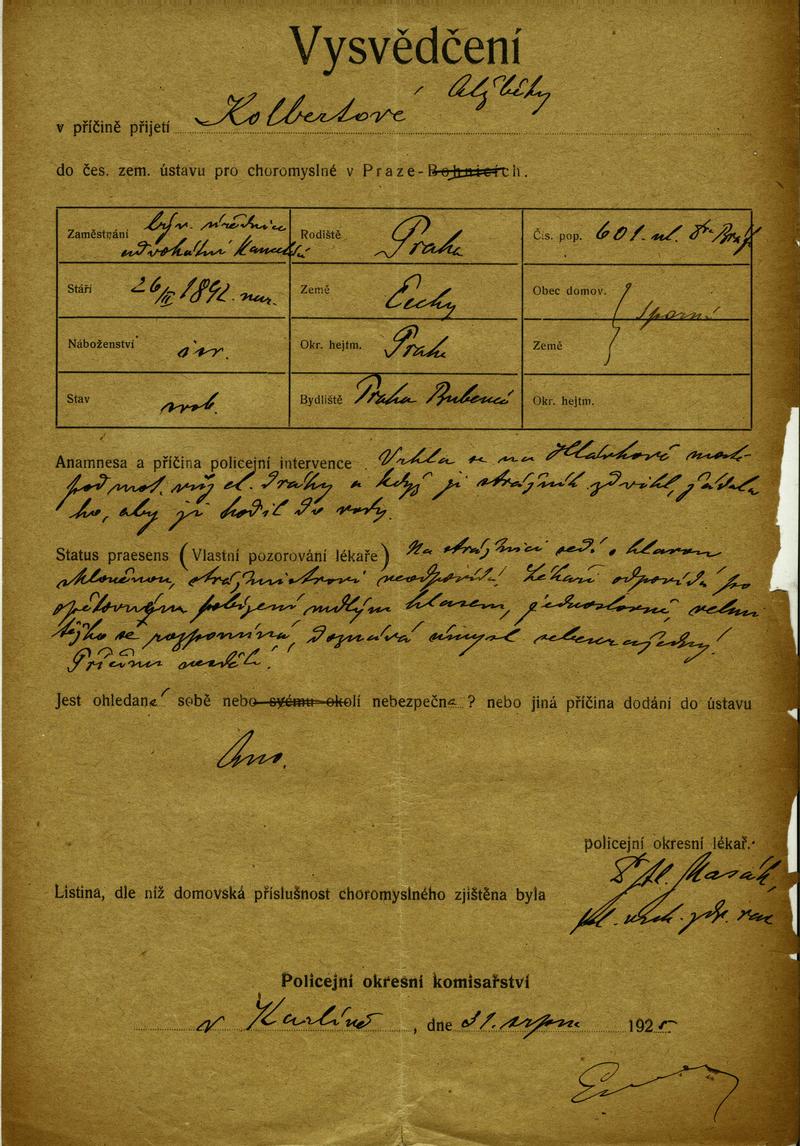 Vysvědčení
v příčině přijetí Kolbertové Alžběty
do čes. zem. ústavu pro choromyslné v Praze-Bohnicích.
Zaměstnání býv. úřednice advokátní kanceláře
Rodiště Praha
Čís. pop. 601. ul. Dra
Stáří 26/IX 1892. nar.
Země Čechy
Obec domov. sporné
Náboženství isr.
Okr. hejtm. Praha
Země
Stav svob.
Bydliště Praha Bubeneč
Okr. hejtm.
Anamnesa a příčina policejní intervence Vrhla se na Hlávkově mostě
pod mot. vůz el. dráhy a když ji strážník zdvihl, žádala
ho, aby ji hodil do vody.
Status praesens (Vlastní pozorování lékaře) Na strážnici sedí s hlavou
skloněnou, strážmistrovi neodpovídá. Lékaři odpovídá po
opětovným pobízení mdlým hlasem, jednoslovně, velmi
těžko se rozpomíná, doznává úmysl sebevražedný!
Příčinu nesdělí!
Jest ohledaná sobě nebo svému okolí nebezpečna ? nebo jiná příčina dodání do ústavu
Ano.
policejní okresní lékař.
Dr Masák,
zdr. rada
Listina, dle niž domovská příslušnost choromyslného zjištěna byla
Policejní okresní komisařství
v Karlíně, dne 31. srpna 1925